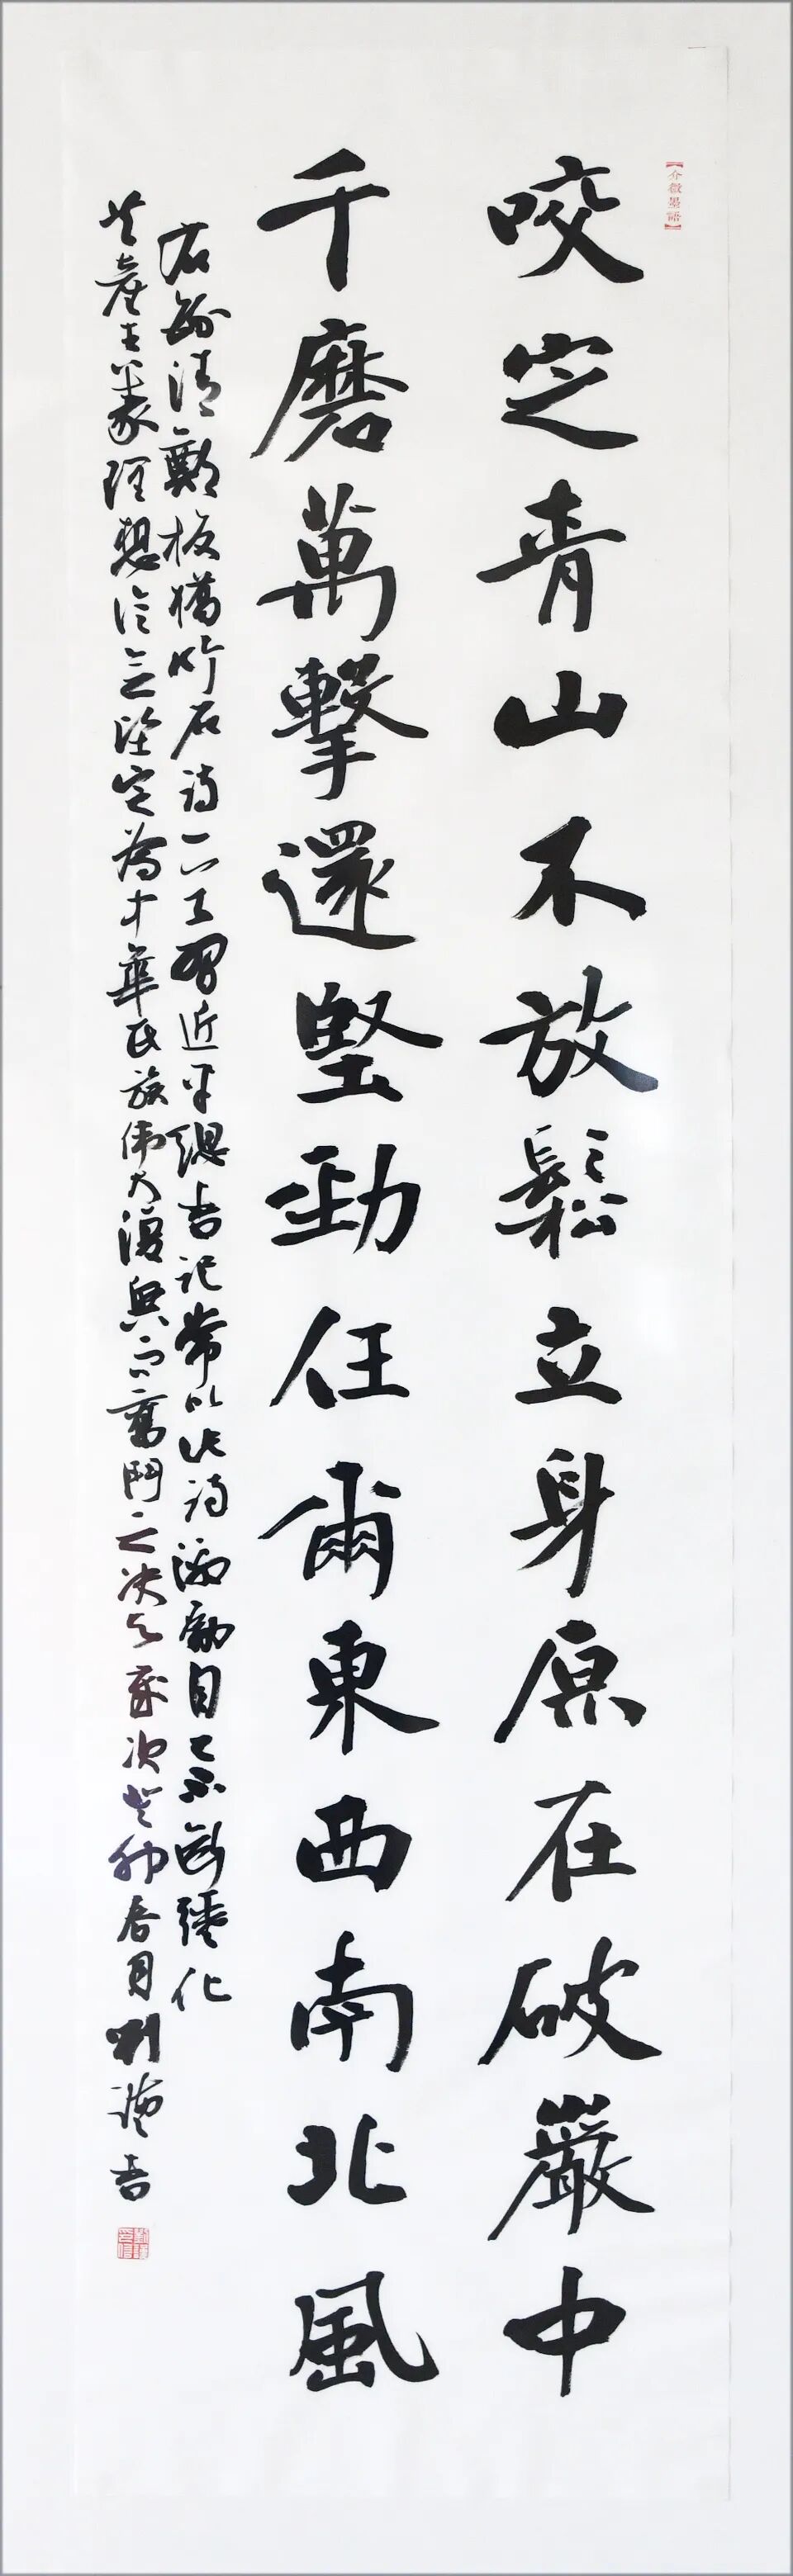 【介微墨語】
咬定青山不放鬆立身原在破巖中
千磨萬擊還堅勁任爾東西南北風
右錄清鄭板橋竹石詩一首習近平總書記常以此詩激勵自己不斷強化
共產主義理想信念堅定為中華民族偉大復興而奮鬥之決心歲次癸卯春月劉謹書